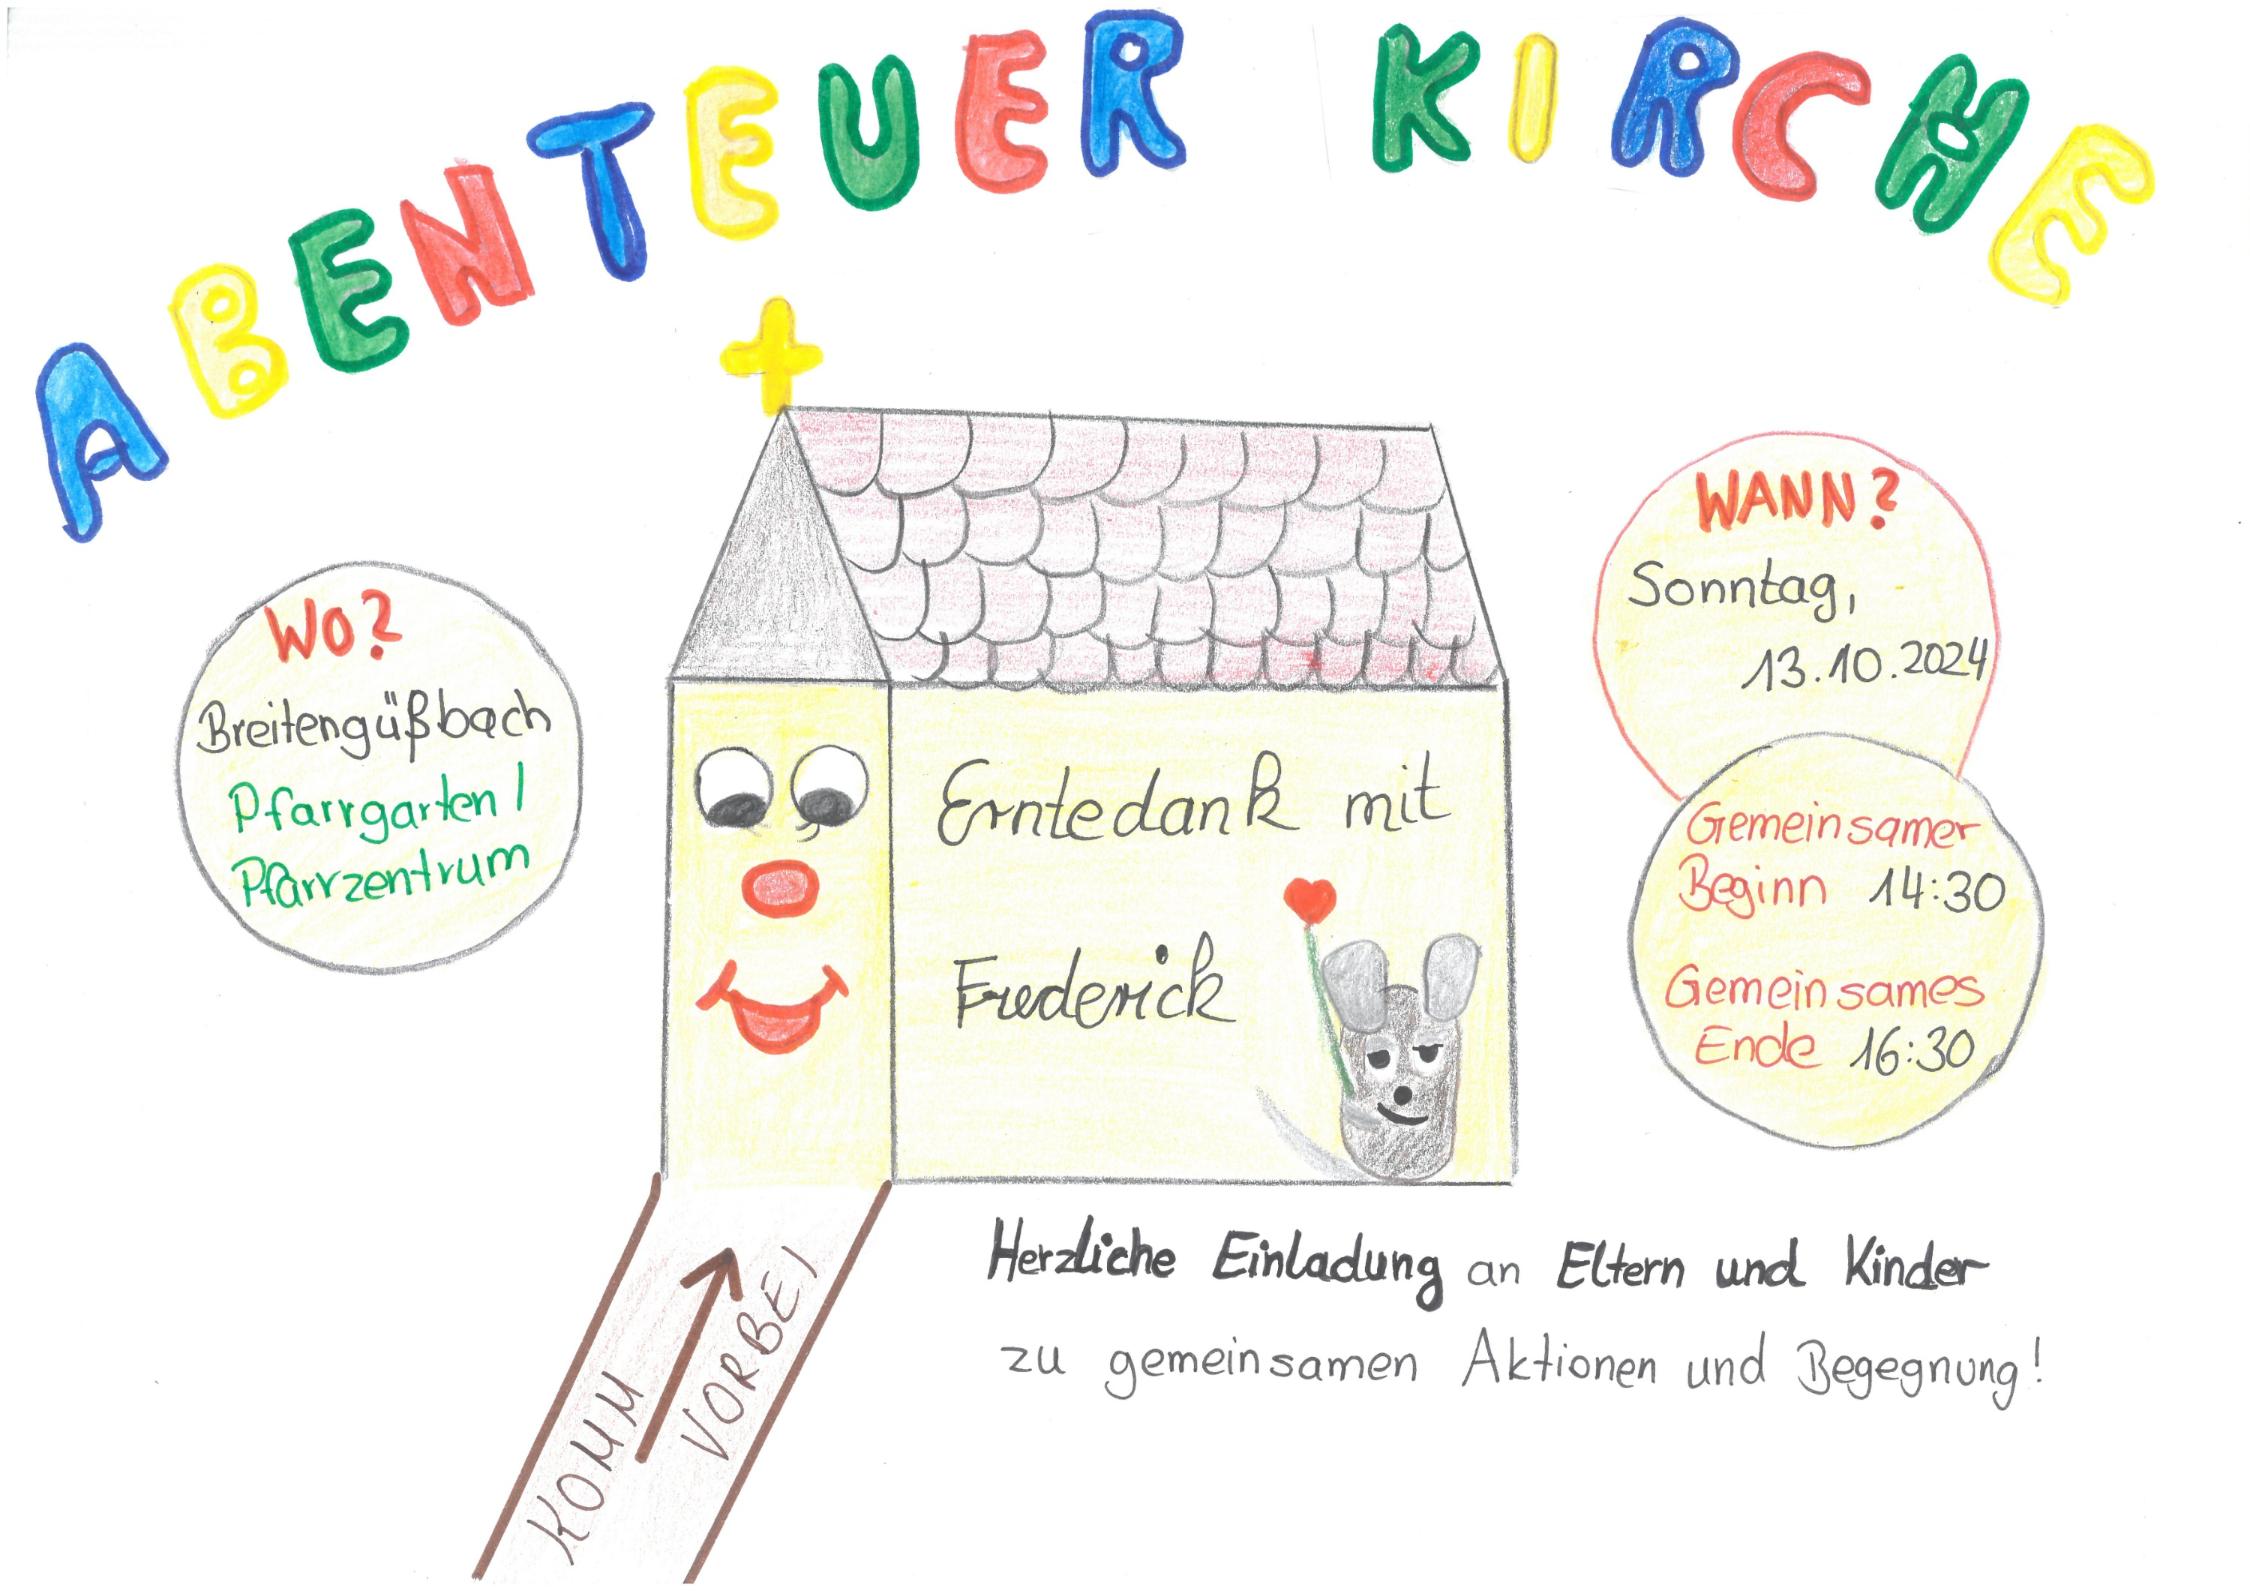 ABENTEUER KIRCHE
WO?
Breitengüßbach
Pfarrgarten /
Pfarrzentrum
WANN?
Sonntag,
13.10.2024
Gemeinsamer
Beginn 14:30
Gemeinsames
Ende 16:30
Erntedank mit
Frederick
KOMM
VORBEI
Herzliche Einladung an Eltern und Kinder
zu gemeinsamen Aktionen und Begegnung!